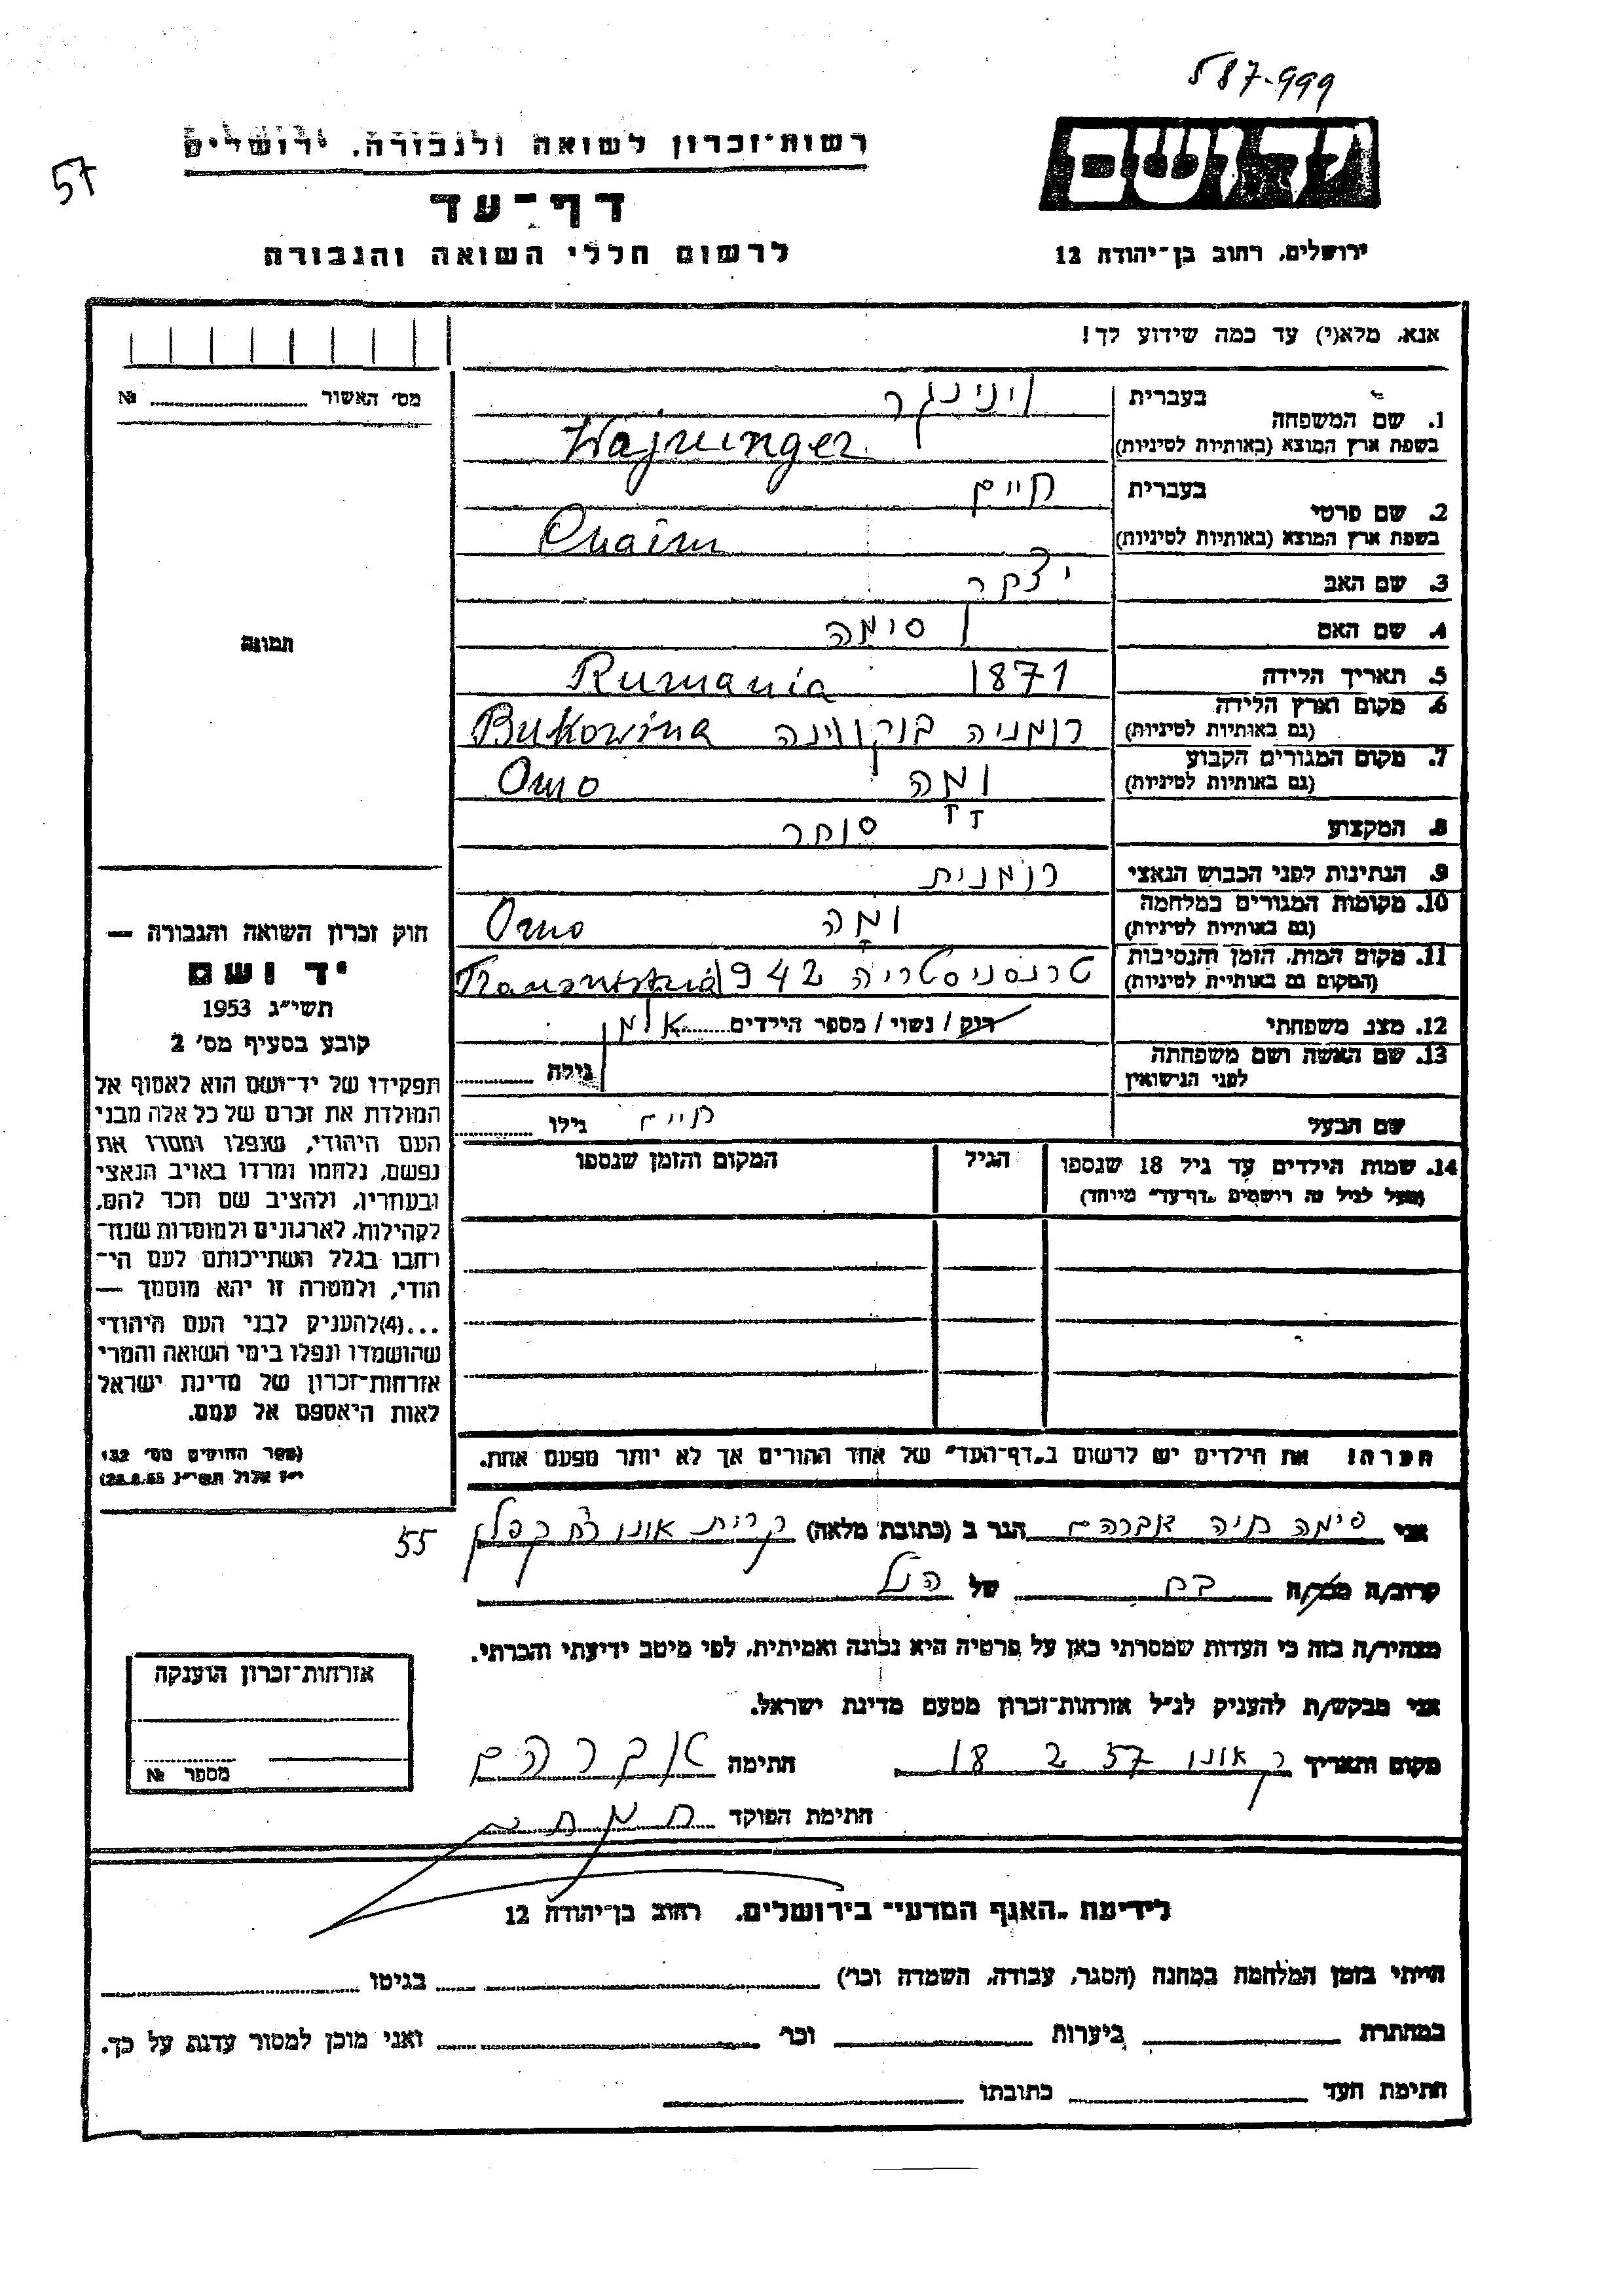 587-999
57
רשות־זכרון לשואה ולגבורה, ירושלים
יד ושם
דף־עד
ירושלים, רחוב בן־יהודה 12
לרשום חללי השואה והגבורה
אנא, מלא(י) עד כמה שידוע לך!
מס׳ האשור № 
1. שם המשפחה בעברית ויינינגר
בשפת ארץ המוצא (באותיות לטיניות) Wajninger
2. שם פרטי בעברית חיים
בשפת ארץ המוצא (באותיות לטיניות) Chaim
3. שם האב
4. שם האם סימה
תמונה
5. תאריך הלידה 1871 Rumania
6. מקום וארץ הלידה (גם באותיות לטיניות) רומניה בוקווינה Bukowina
7. מקום המגורים הקבוע (גם באותיות לטיניות)
8. המקצוע סוחר
9. הנתינות לפני הכבוש הנאצי רומנית
10. מקומות המגורים במלחמה (גם באותיות לטיניות)
11. מקום המות, הזמן והנסיבות (המקום גם באותיות לטיניות) טרנסניסטריה 1942
12. מצב משפחתי רוק / נשוי / מספר הילדים אלמן
13. שם האשה ושם משפחתה לפני הנישואין גילה
שם הבעל חיים גילו
14. שמות הילדים עד גיל 18 שנספו הגיל המקום והזמן שנספו
(מעל לגיל זה רושמים „דף־עד״ מיוחד)
חוק זכרון השואה והגבורה —
יד ושם
תשי״ג 1953
קובע בסעיף מס׳ 2
תפקידו של יד־ושם הוא לאסוף אל
המולדת את זכרם של כל אלה מבני
העם היהודי, שנפלו ומסרו את
נפשם, נלחמו ומרדו באויב הנאצי
ובעוזריו, ולהציב שם וזכר להם,
לקהילות, לארגונים ולמוסדות שנח־
רבו בגלל השתייכותם לעם הי־
הודי, ולמטרה זו יהא מוסמך —
...(4)להעניק לבני העם היהודי
שהושמדו ונפלו בימי השואה והמרי
אזרחות־זכרון של מדינת ישראל
לאות היאספם אל עמם.
(ספר החוקים מס׳ 132,
י״ז אלול תשי״ג 28.8.53)
הערה! את הילדים יש לרשום ב„דף־העד״ של אחד ההורים אך לא יותר מפעם אחת.
אני סימה חיה אברהם הגר ב (כתובת מלאה) קרית אונו רח קפלן
55
קרוב/ה מכר/ה בת של הנ״ל
מצהיר/ה בזה כי העדות שמסרתי כאן על פרטיה היא נכונה ואמיתית, לפי מיטב ידיעתי והכרתי.
אני מבקש/ת להעניק לנ״ל אזרחות־זכרון מטעם מדינת ישראל.
אזרחות־זכרון הוענקה
מספר №
מקום ותאריך ק אונו 18 2 57 חתימה אברהם
חתימת הפוקד
לידיעת „האגף המדעי״ בירושלים, רחוב בן־יהודה 12
הייתי בזמן המלחמה במחנה (הסגר, עבודה, השמדה וכו׳) בגיטו
במחתרת ביערות וכו׳ ואני מוכן למסור עדות על כך.
חתימת העד כתובתו